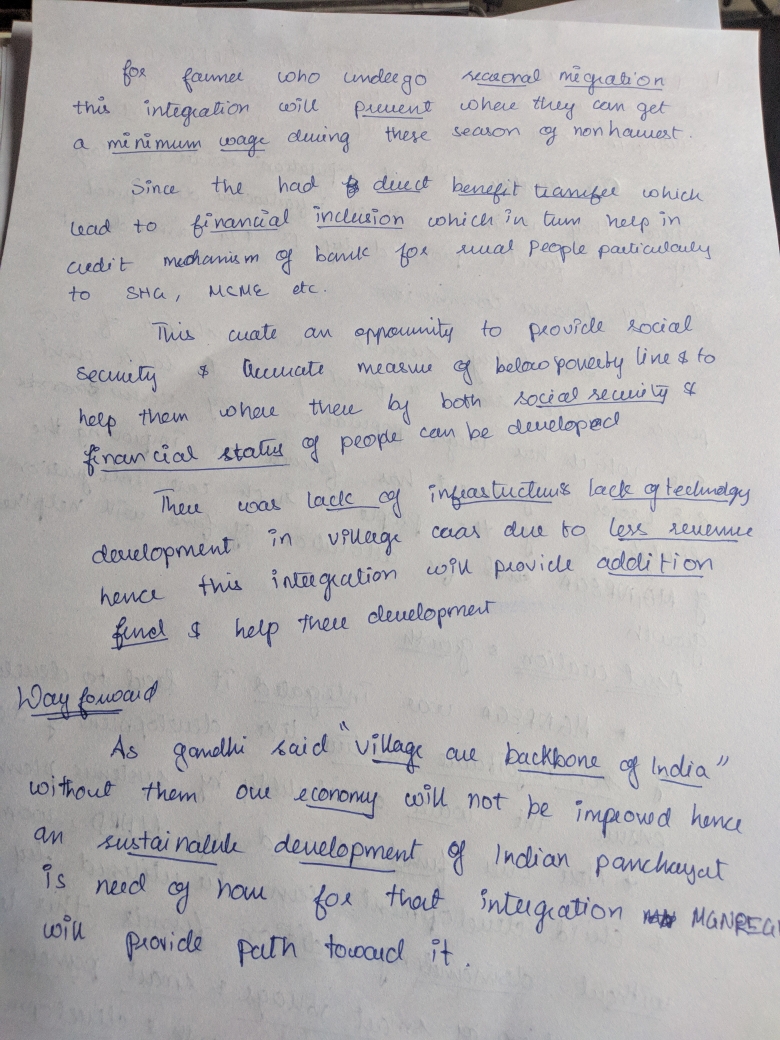 for farmer who undergo seasonal migration
this integration will prevent where they can get
a minimum wage during these season of nonharvest.
Since the had direct benefit transfer which
lead to financial inclusion which in turn help in
credit mechanism of bank for rural people particularly
to SHG, MSME etc.
This create an oppounity to provide social
security & Accurate measure of below poverty line & to
help them where there by both social security &
financial status of people can be developed
There was lack of infrastucture & lack of technology
development in village due to less revenue
hence this integration will provide addition
fund & help there development
Way forward
As gandhi said "village are backbone of India"
without them our economy will not be improved hence
an sustainable development of Indian panchayat
is need of hour for that intergration MGNREGA
will provide path toward it.